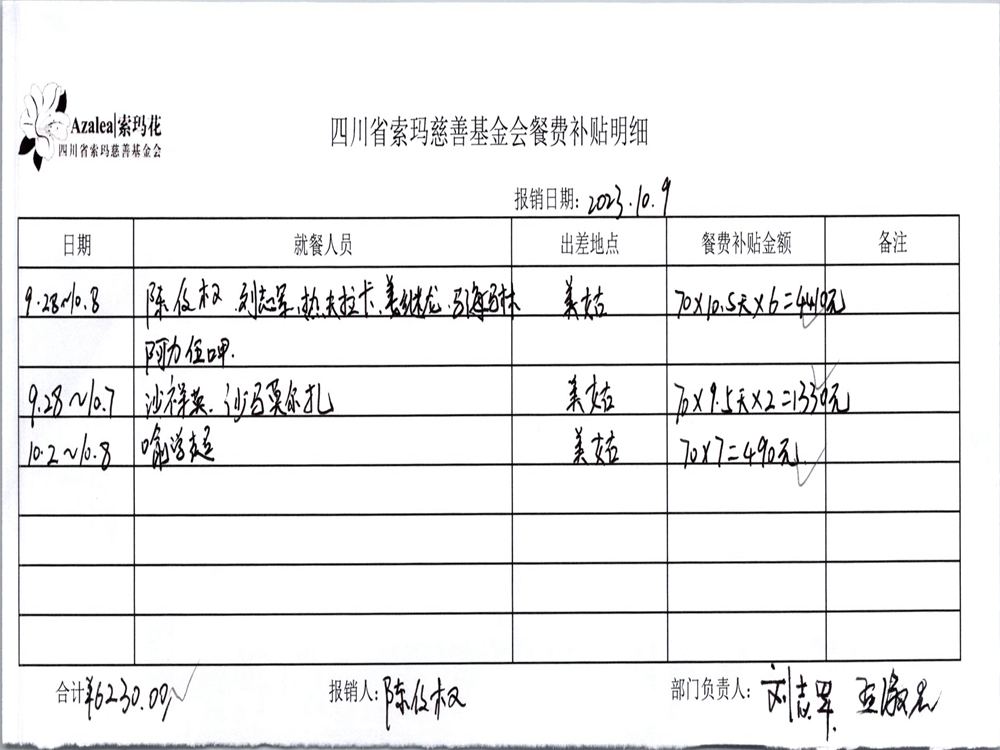 Azalea|索玛花
四川省索玛慈善基金会
四川省索玛慈善基金会餐费补贴明细
报销日期: 2023.10.9
日期 就餐人员 出差地点 餐费补贴金额 备注
9.28~10.8 陈伩权 刘志军 热夫拉卡 姜继龙 马海马林 美姑 70×10.5天×6=4410元
阿力伍呷.
9.28~10.7 沙祥英. 沙马莫尔扎 美姑 70×9.5天×2=1330元
10.2~10.8 美姑 70×7=490元
合计¥6230.00 报销人: 陈伩权 部门负责人: 刘志军